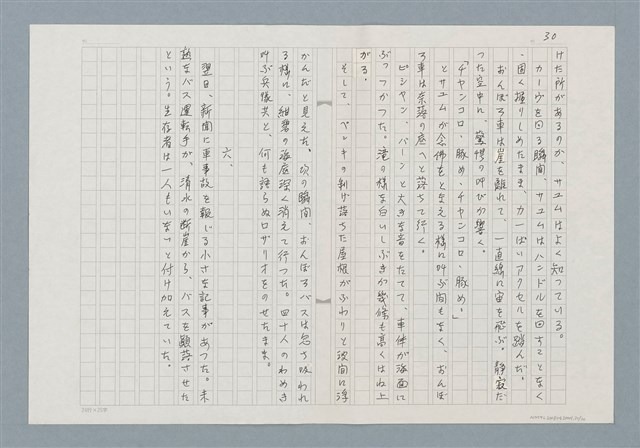 30
けた所があるのか、サユムはよく知っている。
カーヴを回る瞬間、サユムはハンドルを回すことなく
固く握りしめたまま、力一ぱいアクセルを踏んだ。
おんぼろ車は崖を離れて、一直線に宙を飛ぶ。静寂だ
った空中に、驚愕の叫びが響く。
「チヤンコロ・豚め・チヤンコロ・豚め。」
とサユムが念佛をとなえる様に叫ぶ間もなく、おんぼ
ろ車は奈落の底へと落ちて行く。
ピシヤン、バーンと大きな音をたてて、車体が海面に
ぶっつかった。滝の様な白いしぶきが幾條も高くはね上
がる。
そして、ペンキの剥げ落ちた屋根がふわりと波間に浮
かんだと見えた。次の瞬間、おんぼろバスは忽ち吸われ
る様に、紺碧の海底深く消えて行つた。四十人のわめき
叫ぶ兵隊共と、何も語らぬロザリオをのせたまま。
六、
翌日、新聞に車事故を報じる小さな記事があつた。未
熟なバス運転手が、清水の断崖から、バスを顛落させた
という。生存者は一人もいないと付け加えていた。